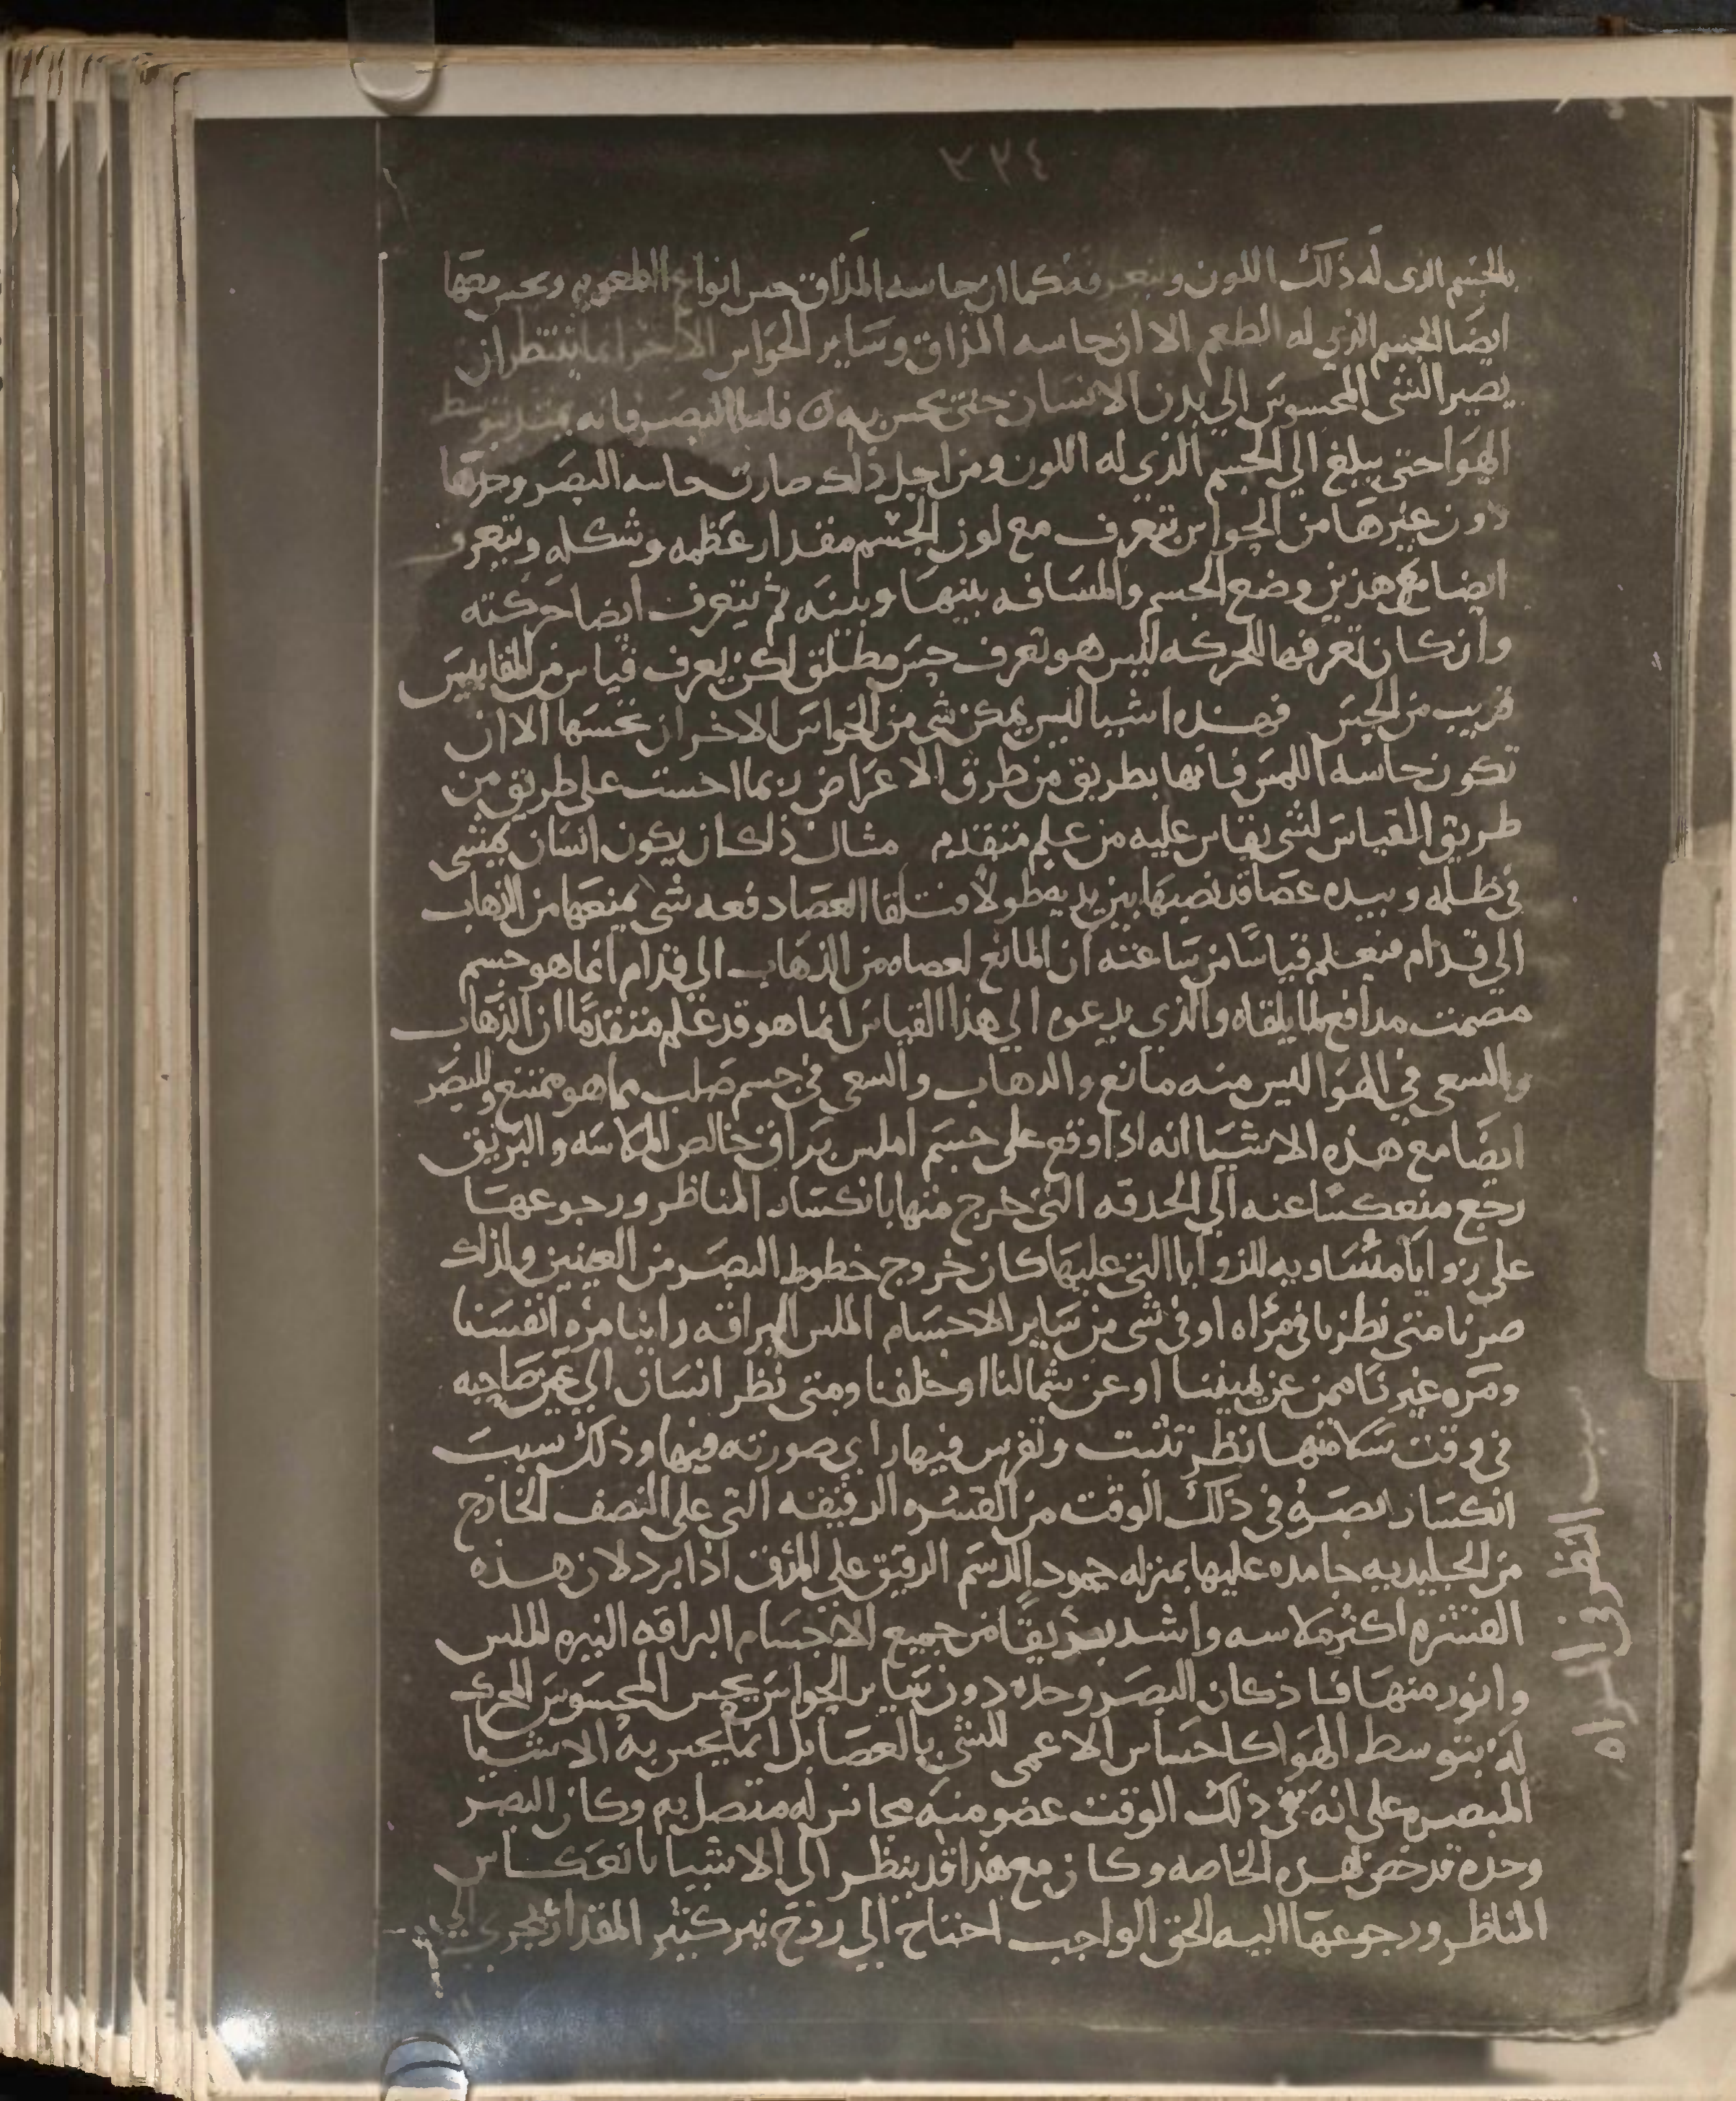 ٣٣٤
بالجسم الذى له ذلك اللون وتتعرفه كما ان حاسه المذاق حس انواع الطعوم وتحس معها
ايضا الجسم الذي له الطعم الا ان حاسه المذاق وسائر الحواس الاخر انما ينتظر ان
يصير الشى المحسوس الي بدن الانسان حتى يحس به فاما البصر فانه يمتد بتوسط
الهوا حتى يبلغ الي الجسم الذي له اللون ومن اجل ذلك صارت حاسه البصر وحدها
دون غيرها من الحواس تتعرف مع لون الجسم مقدار عظمه وشكله وتتعرف
ايضا مع هذين وضع الجسم والمسافه بينها وبينه ثم تتعرف ايضا حركته
وان كان تعرفها للحركه ليس هو تعرف حس مطلق لكن يعرف قياس من المقاييس
قريب من الحس فهذه اشيا ليس يمكن شى من الحواس الاخر ان تحسها الا ان
تكون حاسه اللمس فانها بطريق من طرق الاعراض ربما احست على طريق من
طريق القياس لشى يقاس عليه من علم متقدم مثال ذلك ان يكون انسان يمشى
في ظلمه وبيده عصا قد نصبها بين يديه طولا فتلقا العصا دفعه شى يمنعها من الذهاب
الي قدام فيعلم قياسا من ساعته ان المانع لعصاه من الذهاب الي قدام انما هو جسم
مصمت مدافع لما يلقاه والذي يدعوه الي هذا القياس انما هو قد علم متقدما ان الذهاب
والسعى في الهوا ليس منه مانع والذهاب والسعى في جسم صلب مما هو ممتنع وللبصر
ايضا مع هذه الاشيا انه اذا وقع على جسم املس براق خالص الملاسه والبريق
رجع منعكسا عنه الي الحدقه التي خرج منها بانكسار المناظر ورجوعها
على زوايا متساويه للزوايا التي عليها كان خروج خطوط البصر من العينين ولذلك
صرنا متى نظرنا في مراه او في شى من ساير الاجسام الملس البراقه راينا مره انفسنا
ومره غيرنا ممن عن يميننا او عن شمالنا او خلفنا ومتى نظر انسان الي عين صاحبه
في وقت سلامتها نظر تثبت وتفرس فيها راي صورته فيها وذلك سبب
انكسار بصره في ذلك الوقت من القشره الرقيقه التي على النصف الخارج
من الجليديه جامده عليها بمنزله جمود الدسم الرقيق على المرق اذا برد لان هذه
القشره اكثر ملاسه واشد بريقا من جميع الاجسام البراقه النيره الملس
وانور منها فاذ كان البصر وحده دون ساير الحواس يحس المحسوس المحرك
له بتوسط الهوا كاحساس الاعمى للشى بالعصا بل انما يحس به الاشيا
المبصره على انه في ذلك الوقت عضو منه مجانس له متصل به وكان البصر
وحده قد خص بهذه الخاصه وكان مع هذا قد ينظر الي الاشيا بانعكاس
المناظر ورجوعها اليه لحق الواجب احتاج الي روح نير كثير المقدار يجري
الي
سبب النظر في المراه